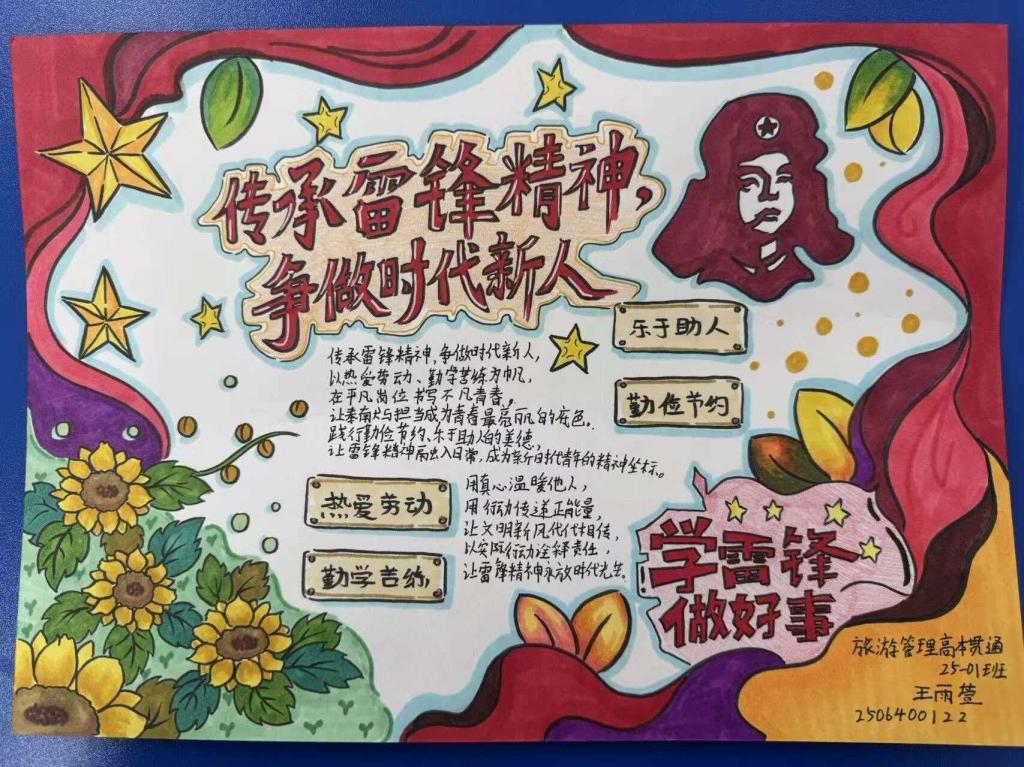 传承雷锋精神,
争做时代新人
乐于助人
勤俭节约
传承雷锋精神,争做时代新人,
以热爱劳动、勤学苦练为帆,
在平凡岗位书写不凡青春。
让奉献与担当成为青春最亮丽的底色。
践行勤俭节约、乐于助人的美德,
让雷锋精神融入日常,成为新时代青年的精神坐标。
热爱劳动
勤学苦练
用真心温暖他人,
用行动传递正能量,
让文明新风代代相传,
以实际行动诠释责任,
让雷锋精神永放时代光芒。
学雷锋
做好事
旅游管理高本贯通
25-01班
王雨萱
2506400122